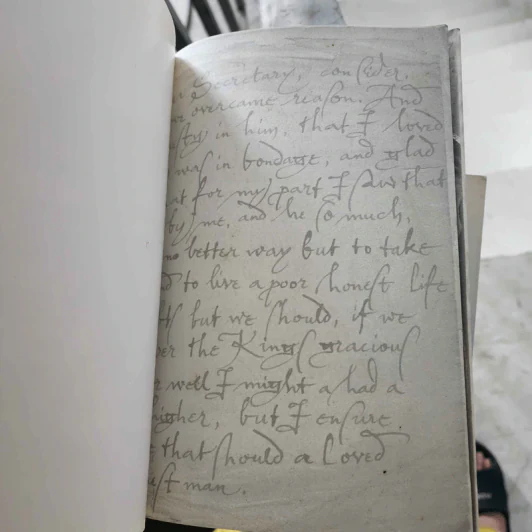 Secretary, consider,
overcame reason. And
in him, that I loved
was in bondage, and glad
for my part I saw that
by me, and he so much,
no better way but to take
to live a poor honest life
but we should, if we
the Kings gracious
well I might a had a
higher, but I ensure
that should a loved
man.